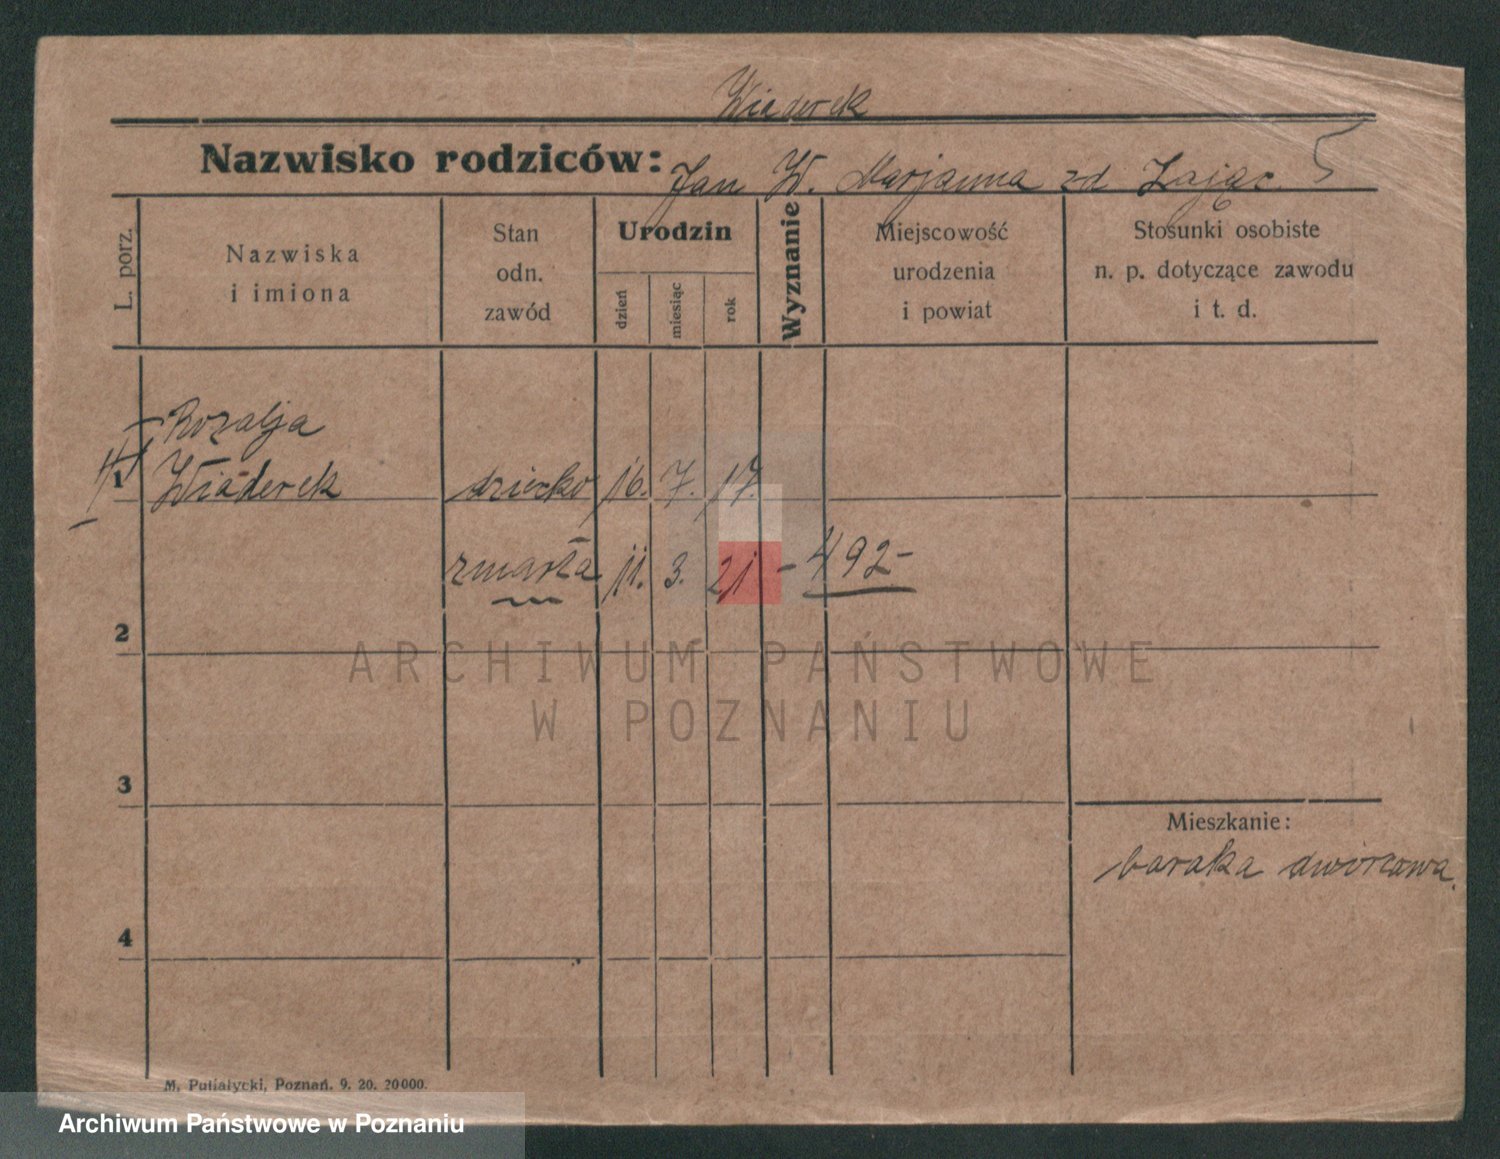 Wiaderek
Nazwisko rodziców: Jan W. Marjanna zd Zając 5
L. porz.
Nazwiska
i imiona
Stan
odn.
zawód
Urodzin
dzień
miesiąc
rok
Wyznanie
Miejscowość
urodzenia
i powiat
Stosunki osobiste
n. p. dotyczące zawodu
i t. d.
Rozalja
1 Wiaderek dziecko 16. 7. 17.
zmarła 11. 3. 21 - 492-
2
ARCHIWUM PAŃSTWOWE
W POZNANIU
3
Mieszkanie:
baraka dwórcowa.
4
M. Putiatycki, Poznań. 9. 20. 20000.
Archiwum Państwowe w Poznaniu